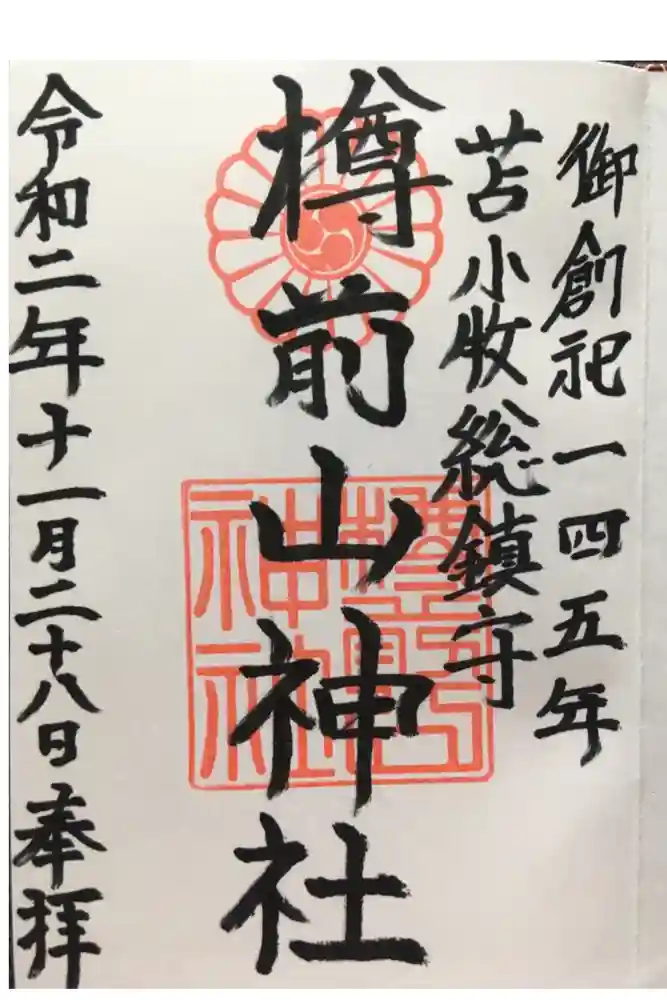 御創祀一四五年
苫小牧総鎮守
樽前山神社
令和二年十一月二十八日奉拝
樽前山
神社